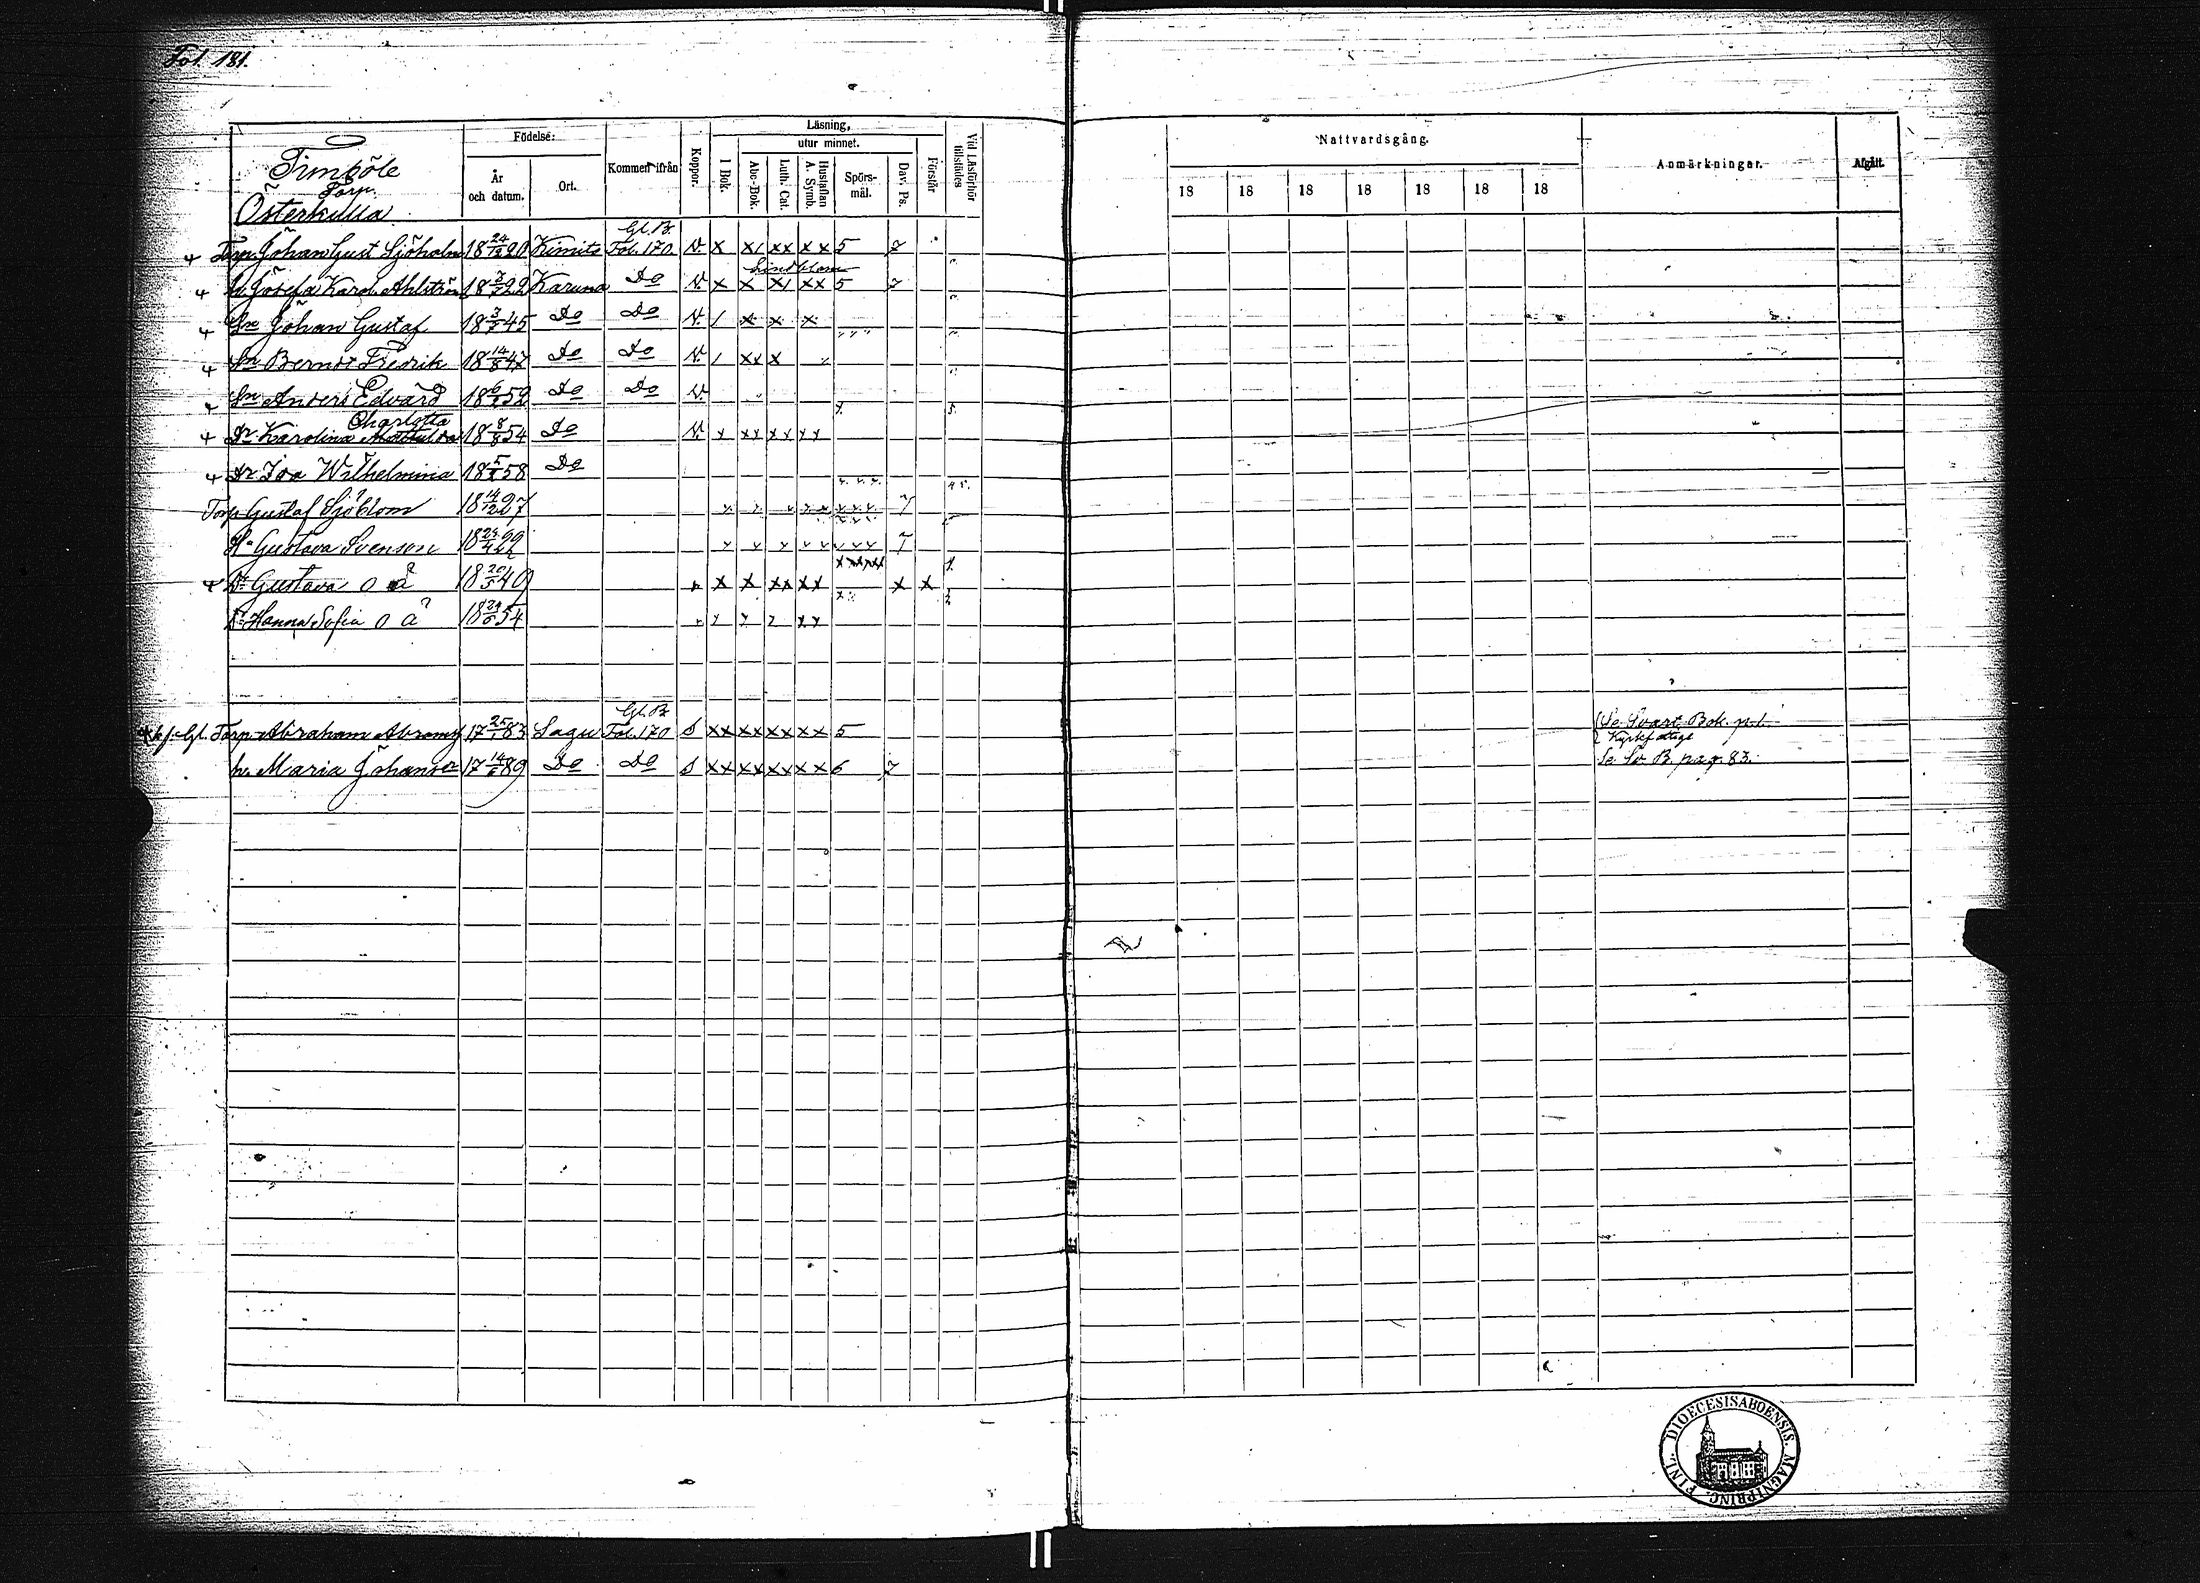 Fol. 181.
Timböle
Torp.
Österkulla
Födelse:
År och datum.
Ort.
Kommen ifrån
Koppor.
Läsning,
I Bok.
utur minnet.
Abc-Bok.
Luth. Cat.
Hustaflan A. Symb.
Spörsmål.
Dav. Ps.
Förstår
Vid Läsförhör tillstädes
Nattvardsgång.
18 18 18 18 18 18 18
Anmärkningar.
Afgått.
Gl. B.
Torp. Johan Gust Sjöholm 18 24/12 20 Kimito Fol. 170. V. x x/ xx xx 5 7
Lindblom
h. Josefa Karol. Ahlström 18 22 Karuna Do V. x x x/ xx 5 7
Sn Johan Gustaf 18 45 Do Do V. / x x x
Sn Bernd Fredrik 18 14/8 47 Do Do V / xx x
Sn Anders Edvard 18 52 Do Do V.
Charlotta
Dr Karolina 18 8/8 54 Do V. x xx xx xx
Dr Ida Wilhelmina 18 58 Do
Torp Gustaf Sjöblom 18 14/12 7
Ha Gustava Svenson 18 24/4 22 7
Dr Gustava o ä 18 20/5 40 x x xx xx x x
Dr Hanna Sofia o ä 18 54
Gl. B.
Gl. Torp Abraham Abrams 17 25/1 83 Sagu Fol. 170 S xx xx xx xx 5 Se Svart Bok. p. 1
Kyrkfattige
h. Maria Johansdr 17 14/6 89 Do Do S xx xx xx xx 6 7 Se Sv B pag 83.
DIOECESIS ABOENSIS. MAGNI PRINC. FINL.